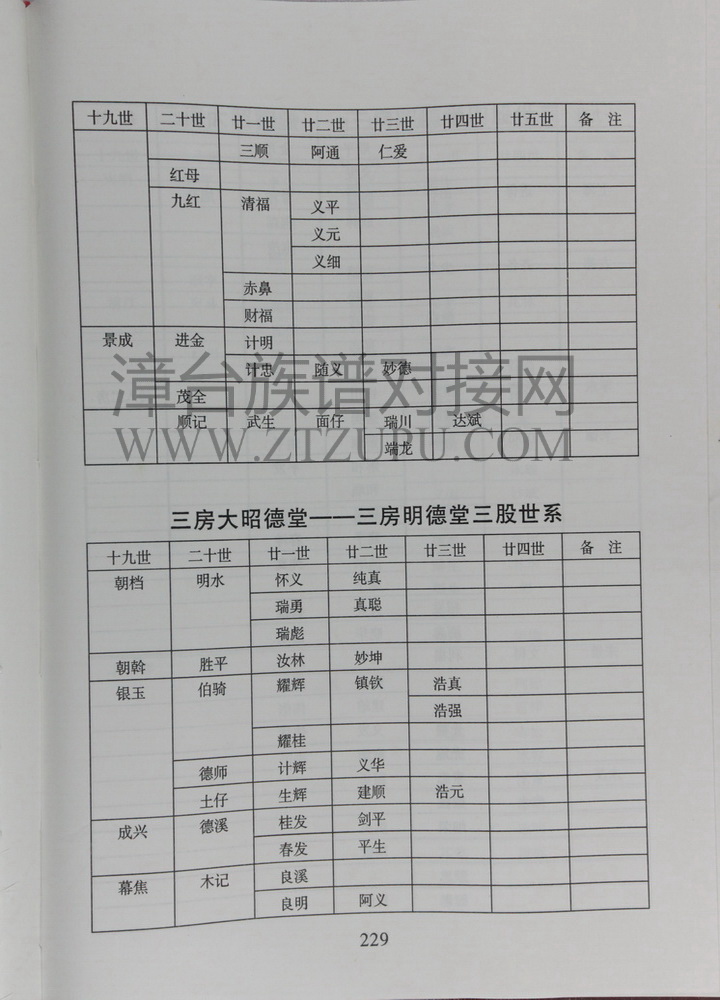 十九世 二十世 廿一世 廿二世 廿三世 廿四世 廿五世 备 注
三顺 阿通 仁爱
红母
九红 清福 义平
义元
义细
赤鼻
财福
景成 进金 计明
计忠 随义 妙德
茂全
顺记 武生 面仔 瑞川 达斌
端龙
漳台族谱对接网
WWW.ZTZUPU.COM
三房大昭德堂——三房明德堂三股世系
十九世 二十世 廿一世 廿二世 廿三世 廿四世 备 注
朝档 明水 怀义 纯真
瑞勇 真聪
瑞彪
朝斡 胜平 汝林 妙坤
银玉 伯骑 耀辉 镇钦 浩真
浩强
耀桂
德师 计辉 义华
土仔 生辉 建顺 浩元
成兴 德溪 桂发 剑平
春发 平生
幕焦 木记 良溪
良明 阿义
229